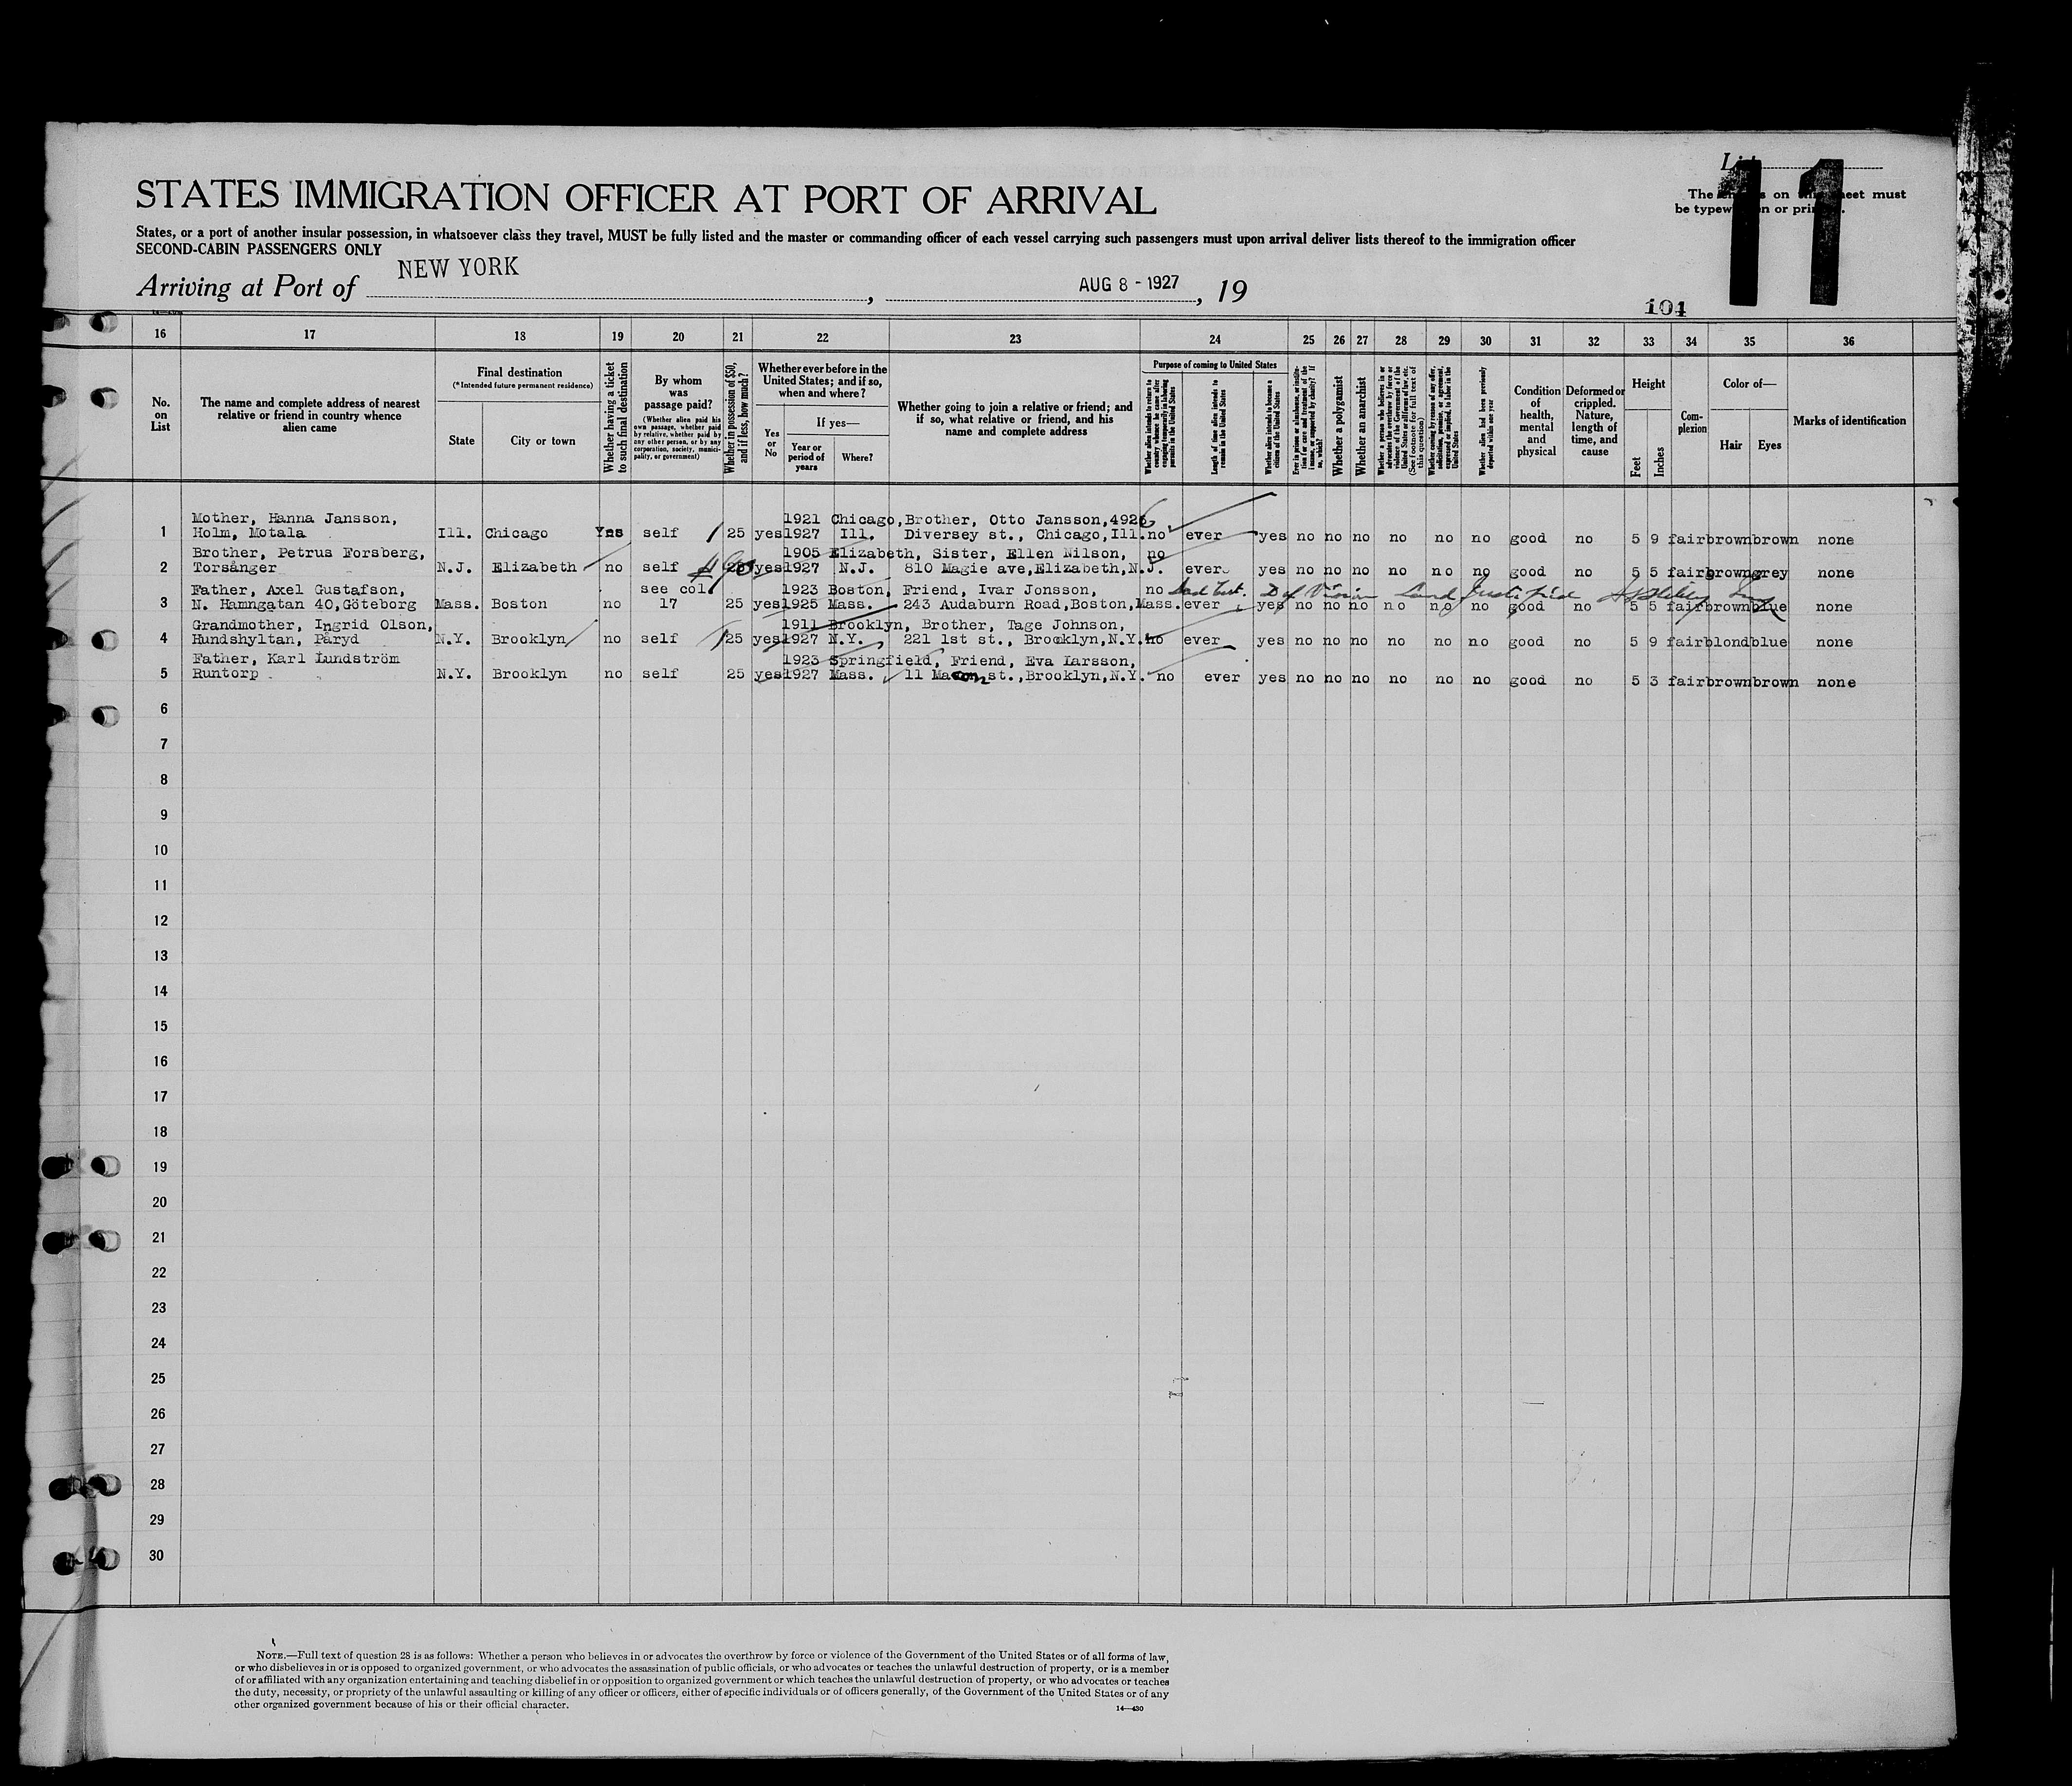 List
11
The entries on this sheet must
be typewritten or printed.
STATES IMMIGRATION OFFICER AT PORT OF ARRIVAL
States, or a port of another insular possession, in whatsoever class they travel, MUST be fully listed and the master or commanding officer of each vessel carrying such passengers must upon arrival deliver lists thereof to the immigration officer
SECOND-CABIN PASSENGERS ONLY
Arriving at Port of NEW YORK, AUG 8 - 1927, 19
104
16 17 18 19 20 21 22 23 24 25 26 27 28 29 30 31 32 33 34 35 36
No. on List
The name and complete address of nearest relative or friend in country whence alien came
Final destination
(*Intended future permanent residence)
State
City or town
Whether having a ticket to such final destination
By whom was passage paid?
(Whether alien paid his own passage, whether paid by relative, whether paid by any other person, or by any corporation, society, municipality, or government)
Whether in possession of $50, and if less, how much?
Whether ever before in the United States; and if so, when and where?
Yes or No
If yes—
Year or period of years
Where?
Whether going to join a relative or friend; and if so, what relative or friend, and his name and complete address
Purpose of coming to United States
Whether alien intends to return to country whence he came after engaging temporarily in laboring pursuits in the United States
Length of time alien intends to remain in the United States
Whether alien intends to become a citizen of the United States
Ever in prison or almshouse, or institution for care and treatment of the insane, or supported by charity? If so, which?
Whether a polygamist
Whether an anarchist
Whether a person who believes in or advocates the overthrow by force or violence of the Government of the United States or all forms of law, etc. (See footnote for full text of this question)
Whether coming by reason of any offer, solicitation, promise, or agreement, expressed or implied, to labor in the United States
Whether alien had been previously deported within one year
Condition of health, mental and physical
Deformed or crippled. Nature, length of time, and cause
Height
Feet
Inches
Complexion
Color of—
Hair
Eyes
Marks of identification
Mother, Hanna Jansson, 1921 Chicago, Brother, Otto Jansson, 4926
1 Holm, Motala Ill. Chicago Yes self 25 yes 1927 Ill. Diversey st., Chicago, Ill. no ever yes no no no no no no good no 5 9 fair brown brown none
Brother, Petrus Forsberg, 1905 Elizabeth, Sister, Ellen Nilson, no
2 Torsånger N.J. Elizabeth no self yes 1927 N.J. 810 Magie ave, Elizabeth, N.J. ever yes no no no no no no good no 5 5 fair brown grey none
Father, Axel Gustafson, see col. 1923 Boston, Friend, Ivar Jonsson, no
3 N. Hamngatan 40, Göteborg Mass. Boston no 17 25 yes 1925 Mass. 243 Audaburn Road, Boston, Mass. ever yes no no no no no no good no 5 5 fair brown blue none
Grandmother, Ingrid Olson, 1911 Brooklyn, Brother, Tage Johnson,
4 Hundshyltan, Påryd N.Y. Brooklyn no self 25 yes 1927 N.Y. 221 1st st., Brooklyn, N.Y. no ever yes no no no no no no good no 5 9 fair blond blue none
Father, Karl Lundström 1923 Springfield, Friend, Eva Larsson,
5 Runtorp N.Y. Brooklyn no self 25 yes 1927 Mass. 11 Macon st., Brooklyn, N.Y. no ever yes no no no no no no good no 5 3 fair brown brown none
6
7
8
9
10
11
12
13
14
15
16
17
18
19
20
21
22
23
24
25
26
27
28
29
30
NOTE.—Full text of question 28 is as follows: Whether a person who believes in or advocates the overthrow by force or violence of the Government of the United States or of all forms of law,
or who disbelieves in or is opposed to organized government, or who advocates the assassination of public officials, or who advocates or teaches the unlawful destruction of property, or is a member
of or affiliated with any organization entertaining and teaching disbelief in or opposition to organized government or which teaches the unlawful destruction of property, or who advocates or teaches
the duty, necessity, or propriety of the unlawful assaulting or killing of any officer or officers, either of specific individuals or of officers generally, of the Government of the United States or of any
other organized government because of his or their official character.
14—430